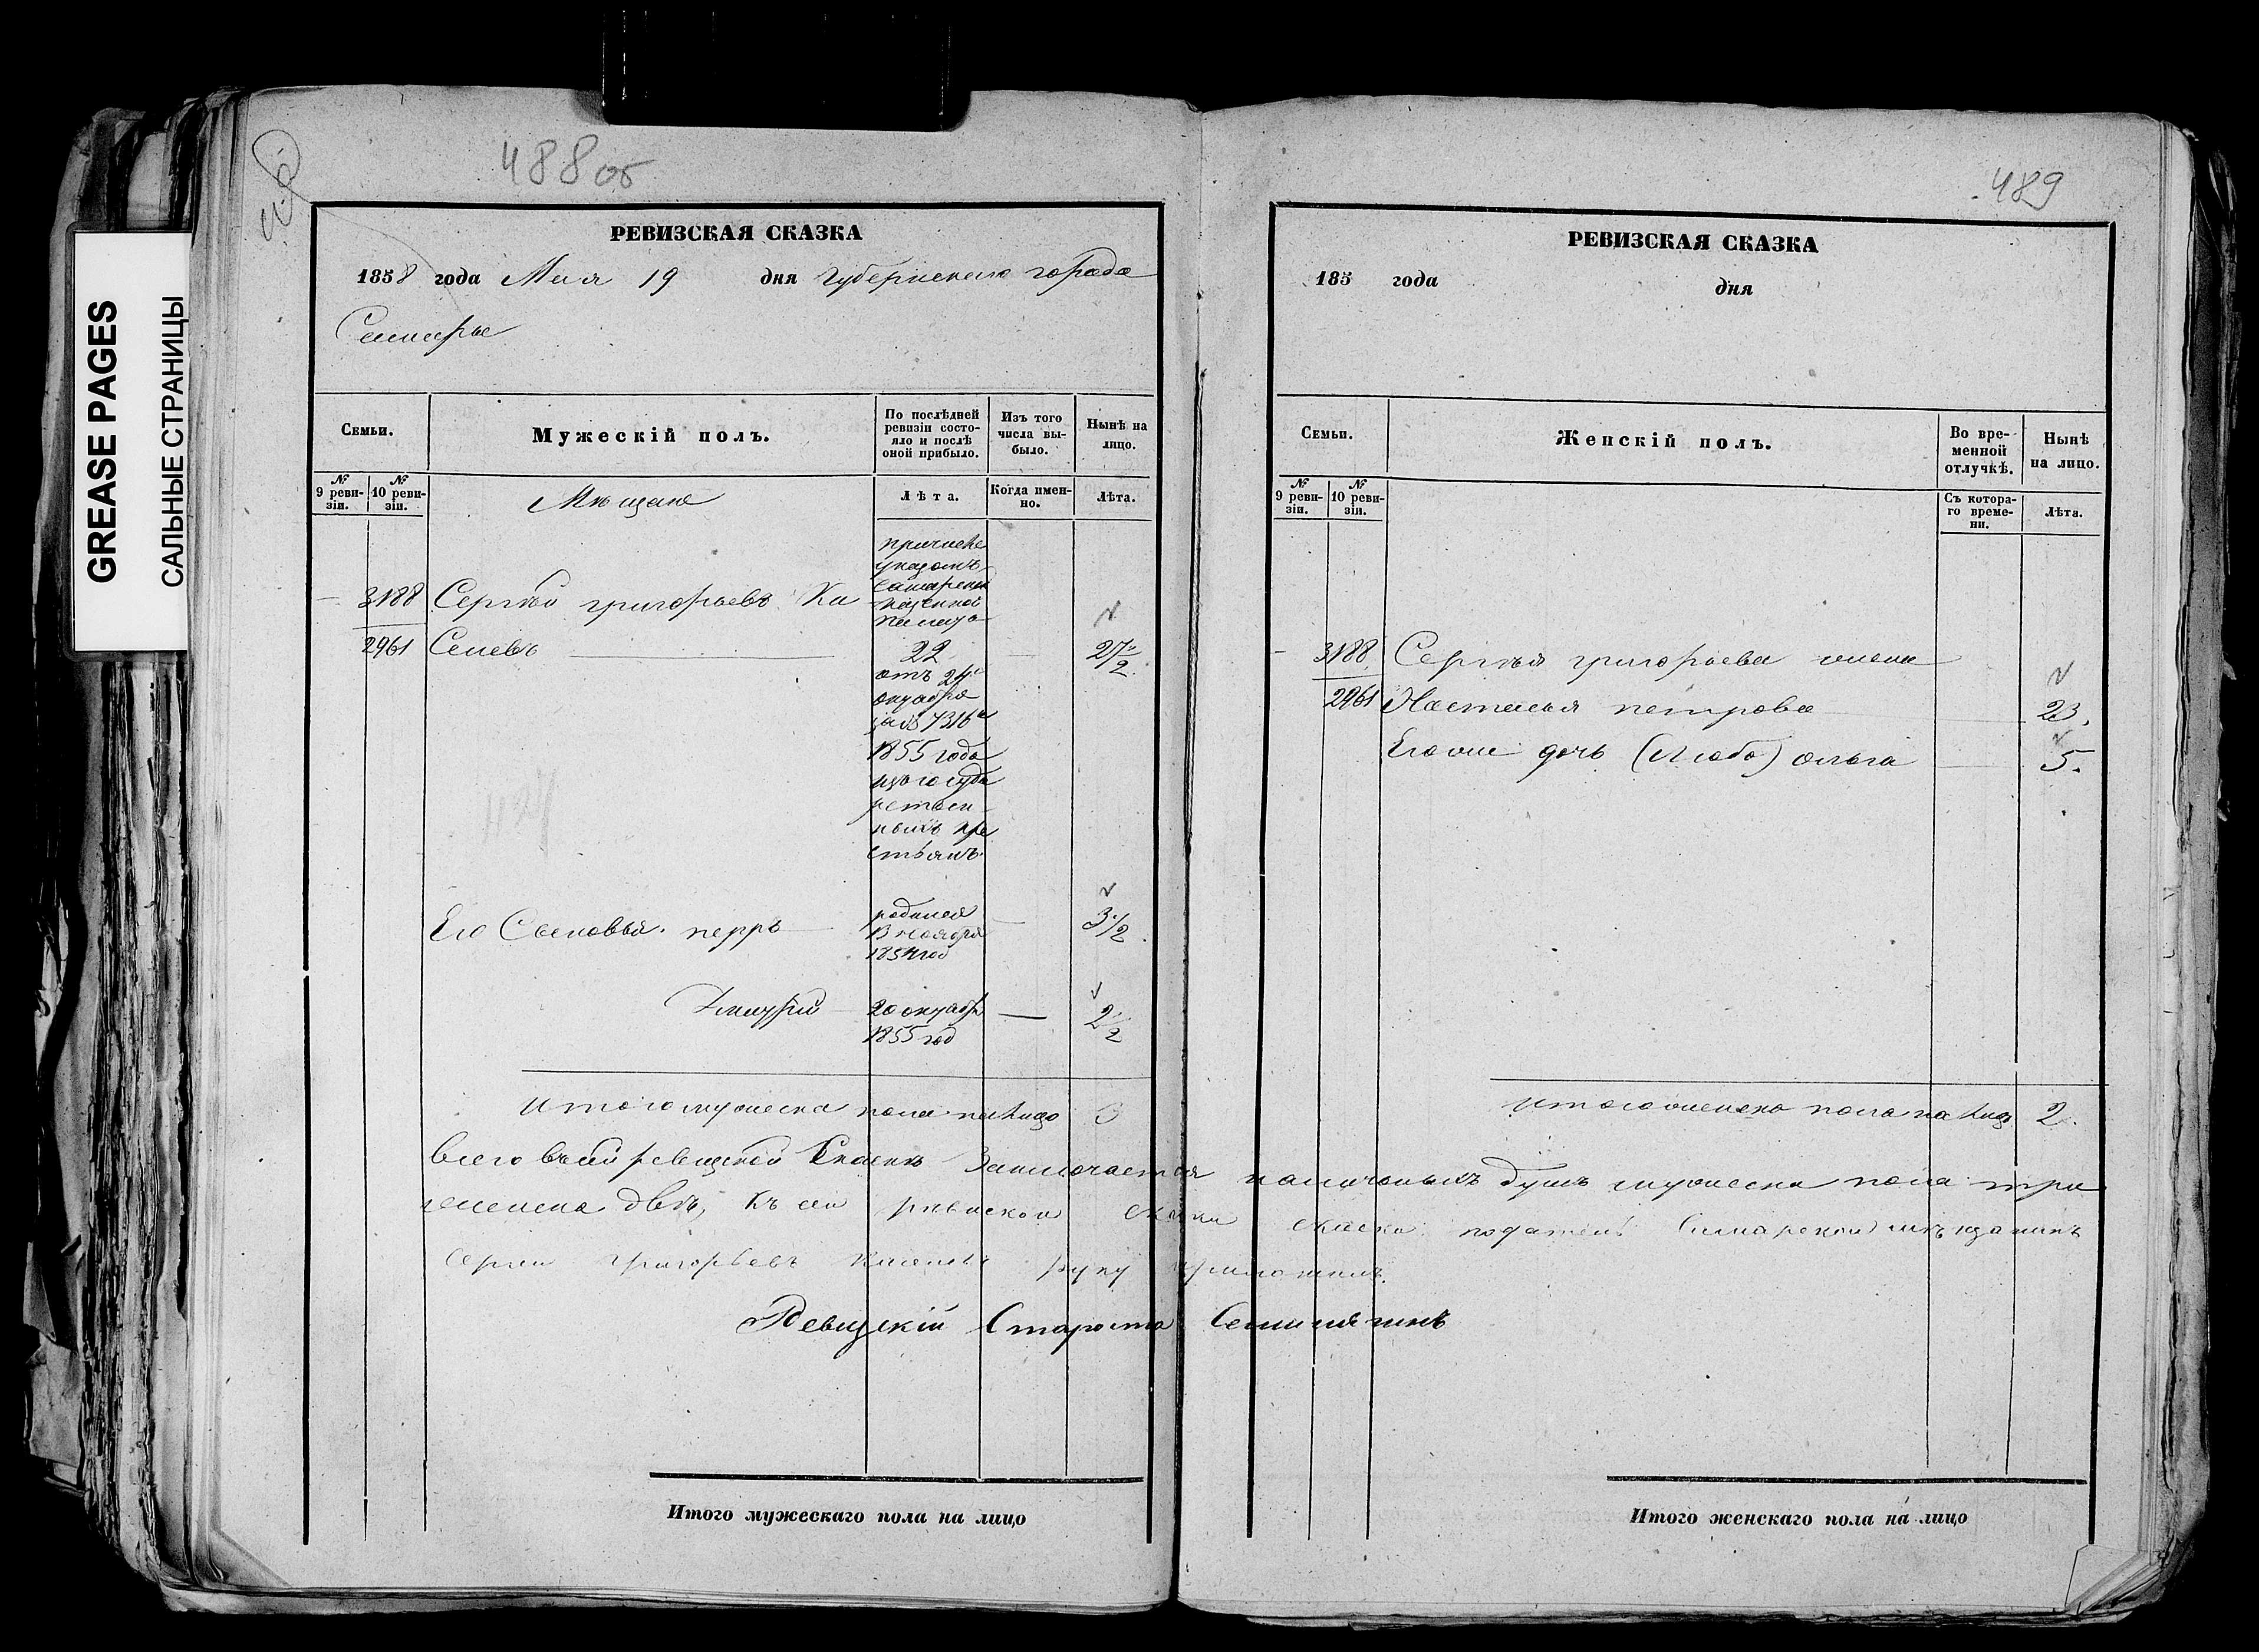 GREASE PAGES
САЛЬНЫЕ СТРАНИЦЫ
488об
РЕВИЗСКАЯ СКАЗКА
1858 года Мая 19 дня Губернскаго города
Самары
Семьи.
Мужескій полъ.
По послѣдней ревизіи состо-
яло и послѣ
оной прибыло.
Изъ того
числа вы-
было.
Нынѣ на
лицо.
№
9 реви-
зіи.
№
10 реви-
зіи.
Мѣщане
Лѣта.
Когда имен-
но.
Лѣта.
3188
2961
Сергѣй григорьевъ Ка
Селевъ
указомъ
казенной
22
27 1/2
отъ 24
октября
за № 7316
1855 года
изъ госуда
рствен
ныхъ кре
стьянъ.
Его Сыновья. петръ
родился
13 ноября
1854 год
3 1/2
Дмитрій
20 октябр
1855 год
2 1/2
Итого мужеска пола на лицо 3
Всего въ сей ревизской Сказкѣ Заключается наличныхъ душъ мужеска пола три
женска двѣ, Къ сей ревиской скаски податель Самарской мѣщанинъ
Сергей Григорьевъ руку приложилъ.
Ревизскій Староста
Итого мужескаго пола на лицо
489
РЕВИЗСКАЯ СКАЗКА
185 года дня
Семьи.
Женскій полъ.
Во вре-
менной
отлучкѣ.
Нынѣ
на лицо.
№
9 реви-
зіи.
№
10 реви-
зіи.
Съ котора-
го време-
ни.
Лѣта.
3188
2961
Сергѣя григорьева жена
Настасья петрова 23.
Его же дочь ольга 5.
Итого женска пола на лицо 2.
Итого женскаго пола на лицо